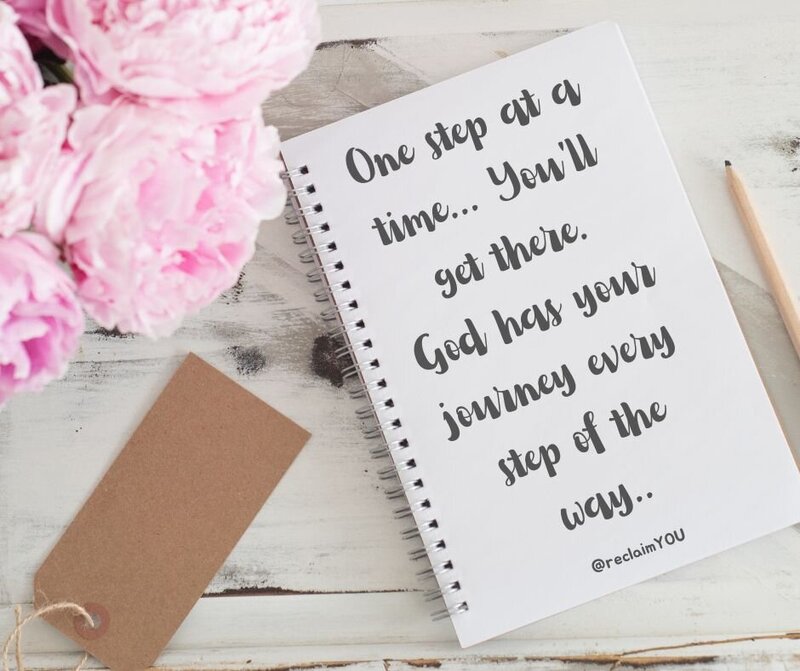 One step at a
time... You'll
get there.
God has your
journey every
step of the
way..
@reclaimYOU